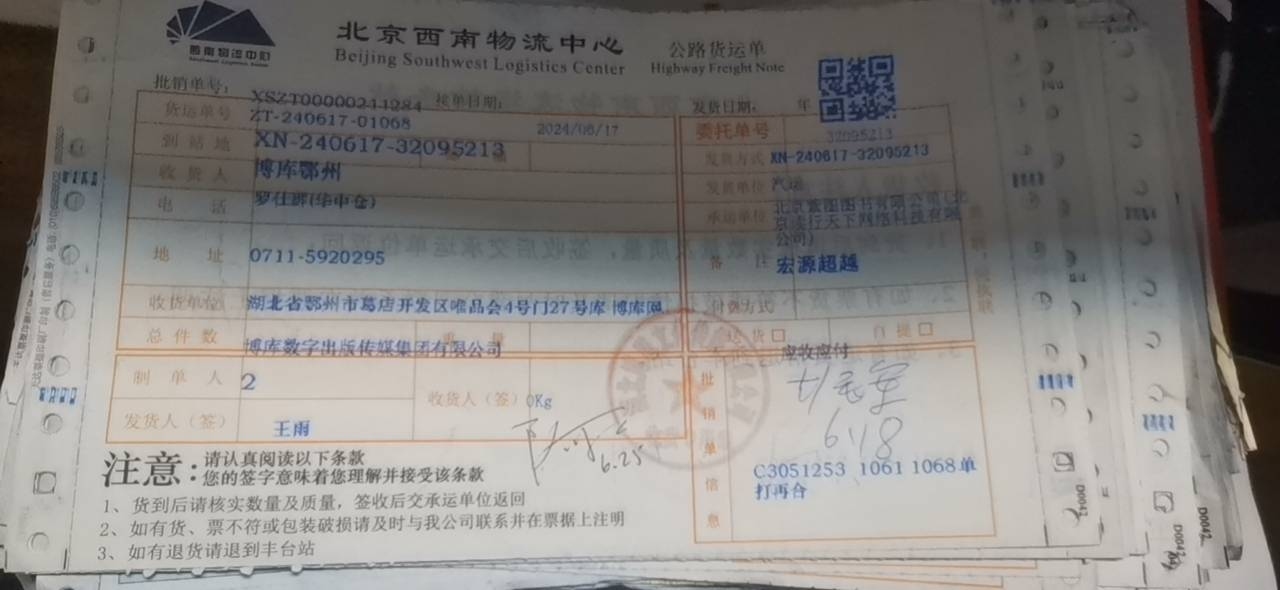 西南物流中心
Southwest Logistics Center
北京西南物流中心
Beijing Southwest Logistics Center
公路货运单
Highway Freight Note
批销单号: XSZT00000211284 接单日期: 发货日期: 年
货运单号 ZT-240617-01068 2024/06/17 委托单号 32095213
到站地 XN-240617-32095213 发货方式 XN-240617-32095213
收货人 博库鄂州 发货单位 汽运
电话 罗仕群(华中仓) 承运单位 北京紫图图书有限公司(北
京读行天下网络科技有限
公司)
地址 0711-5920295 备注 宏源超越
收货单位 湖北省鄂州市葛店开发区唯品会4号门27号库 博库网 付费方式
总件数 博库数字出版传媒集团有限公司 重量 送货口 自提口
应收应付
制单人 2 收货人(签) 0Kg
发货人(签) 王雨
6.25
批销单信息
6.18
C3051253 1061 1068单
打再合
注意:
请认真阅读以下条款
您的签字意味着您理解并接受该条款
1、货到后请核实数量及质量，签收后交承运单位返回
2、如有货、票不符或包装破损请及时与我公司联系并在票据上注明
3、如有退货请退到丰台站
D0042
D0042